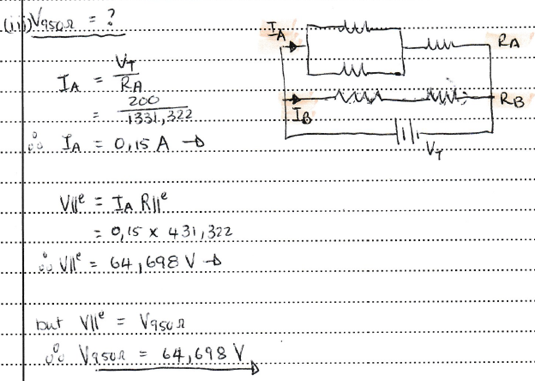 (iii) V950Ω = ?
IA = VT / RA
= 200 / 1331,322
∴ IA = 0,15 A →
V||e = IA R||e
= 0,15 × 431,322
∴ V||e = 64,698 V →
but V||e = V950Ω
∴ V950Ω = 64,698 V
IA
RA
IB
RB
VT